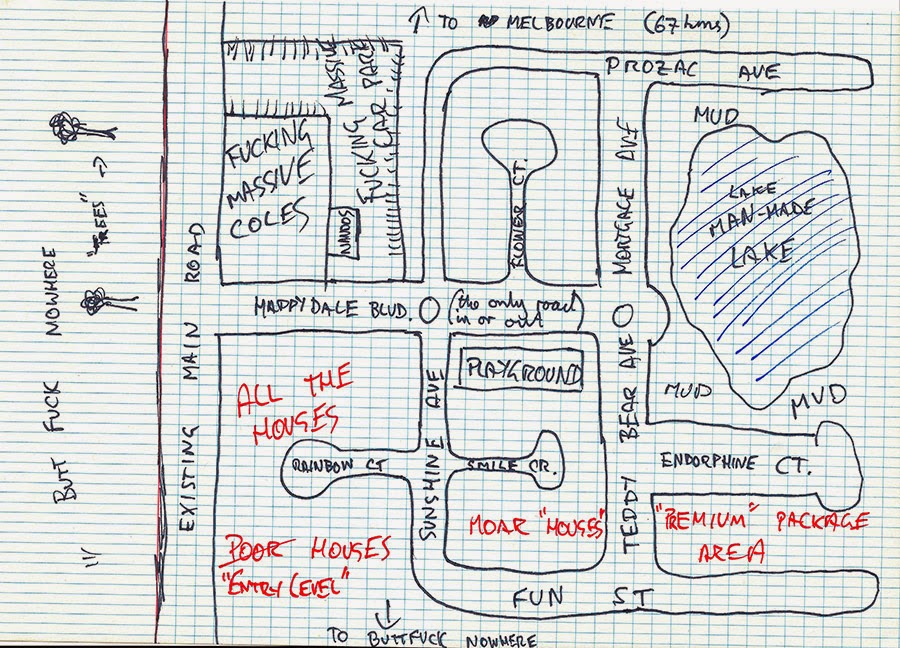 ↑ TO MELBOURNE (67 kms)
PROZAC AVE
FUCKING MASSIVE
COLES
FUCKING MASSIVE
CAR PARK
NANDOS
FLOWER CT.
MORTGAGE AVE
MUD
LAKE
MAN-MADE
LAKE
MUD
MUD
"TREES" →
BUTT FUCK NOWHERE
EXISTING MAIN ROAD
HAPPYDALE BLVD.
(the only road
in or out)
PLAYGROUND
ALL THE
HOUSES
RAINBOW CT
SUNSHINE AVE
SMILE CR.
TEDDY BEAR AVE
ENDORPHINE CT.
MOAR "HOUSES"
"PREMIUM" PACKAGE
AREA
POOR HOUSES
"ENTRY LEVEL"
FUN ST
↓
TO BUTTFUCK NOWHERE